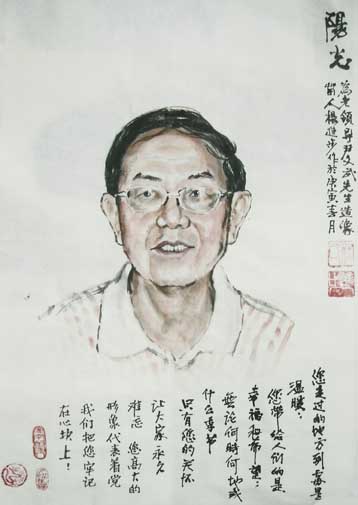 陽光
為老領导尹文武先生造像
人楊進步作於庚寅春月
您走过的地方到處是
温暖；
您帶给人们的是
幸福和希望；
無论何時何地或
什么事
只有您的关怀
让大家永久
难忘 您高大的
形象代表着党
我们把您牢记
在心坎上！